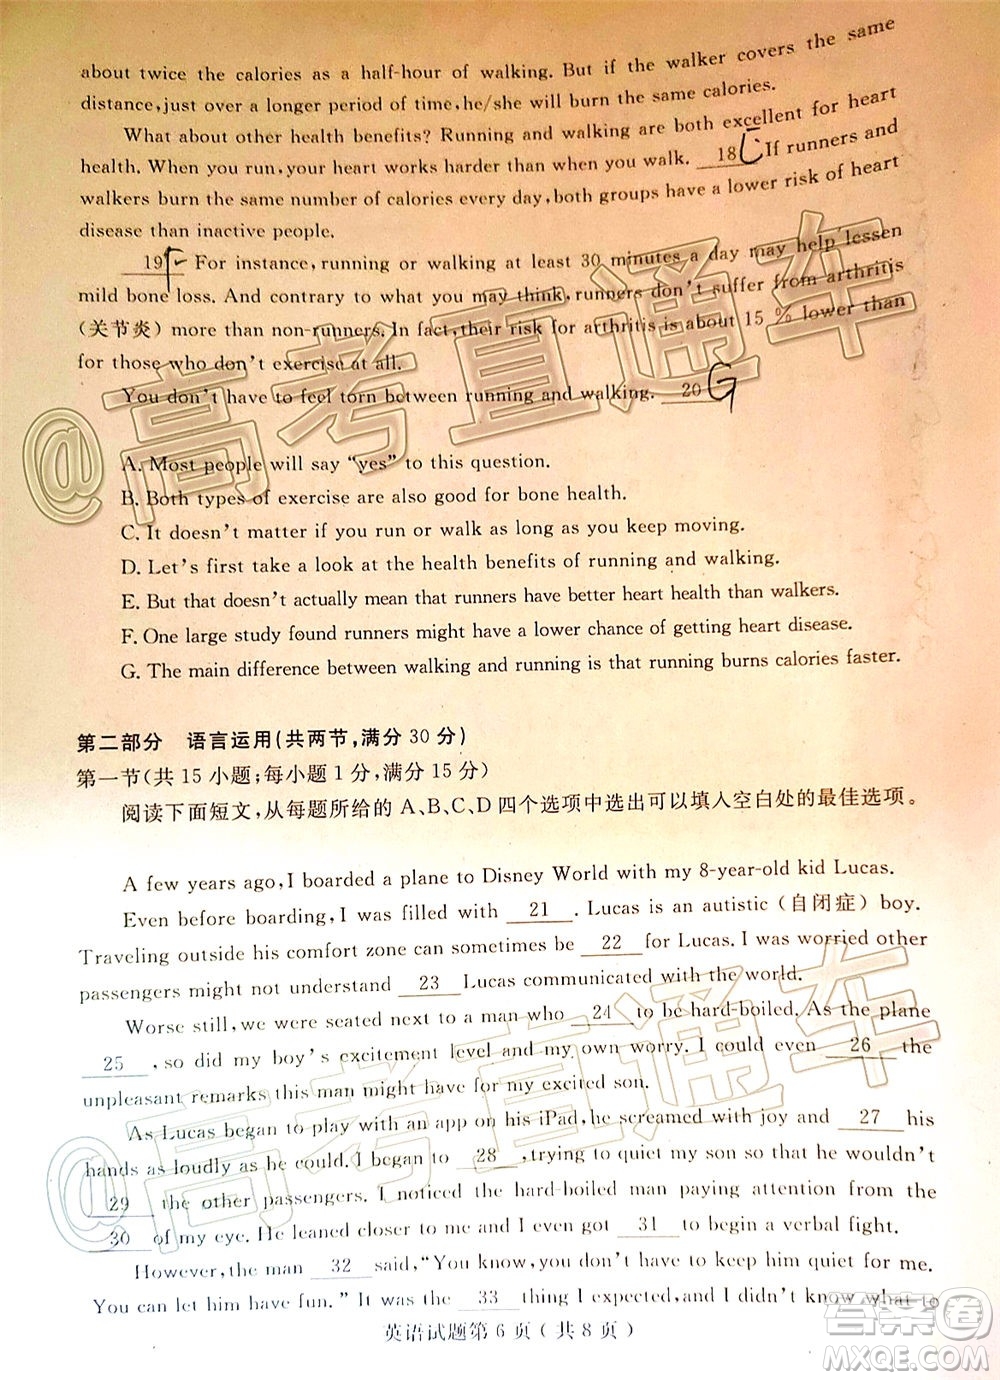 about twice the calories as a half-hour of walking. But if the walker covers the same
distance, just over a longer period of time, he/she will burn the same calories.
What about other health benefits? Running and walking are both excellent for heart
health. When you run, your heart works harder than when you walk. 18 If runners and
walkers burn the same number of calories every day, both groups have a lower risk of heart
disease than inactive people.
19 For instance, running or walking at least 30 minutes a day may help lessen
mild bone loss. And contrary to what you may think, runners don't suffer from arthritis
(关节炎) more than non-runners. In fact, their risk for arthritis is about 15 % lower than
for those who don't exercise at all.
You don't have to feel torn between running and walking. 20 G
A. Most people will say "yes" to this question.
B. Both types of exercise are also good for bone health.
C. It doesn't matter if you run or walk as long as you keep moving.
D. Let's first take a look at the health benefits of running and walking.
E. But that doesn't actually mean that runners have better heart health than walkers.
F. One large study found runners might have a lower chance of getting heart disease.
G. The main difference between walking and running is that running burns calories faster.
第二部分 语言运用(共两节,满分 30 分)
第一节(共 15 小题;每小题 1 分,满分 15 分)
阅读下面短文,从每题所给的 A、B、C、D 四个选项中选出可以填入空白处的最佳选项。
A few years ago, I boarded a plane to Disney World with my 8-year-old kid Lucas.
Even before boarding, I was filled with 21 . Lucas is an autistic (自闭症) boy.
Traveling outside his comfort zone can sometimes be 22 for Lucas. I was worried other
passengers might not understand 23 Lucas communicated with the world.
Worse still, we were seated next to a man who 24 to be hard-boiled. As the plane
25 , so did my boy's excitement level and my own worry. I could even 26 the
unpleasant remarks this man might have for my excited son.
As Lucas began to play with an app on his iPad, he screamed with joy and 27 his
hands as loudly as he could. I began to 28 , trying to quiet my son so that he wouldn't
29 the other passengers. I noticed the hard-boiled man paying attention from the
30 of my eye. He leaned closer to me and I even got 31 to begin a verbal fight.
However, the man 32 said, "You know, you don't have to keep him quiet for me.
You can let him have fun." It was the 33 thing I expected, and I didn't know what to
英语试题第 6 页(共 8 页)
@高考直通车
@高考直通车
答案卷
MXQE.COM